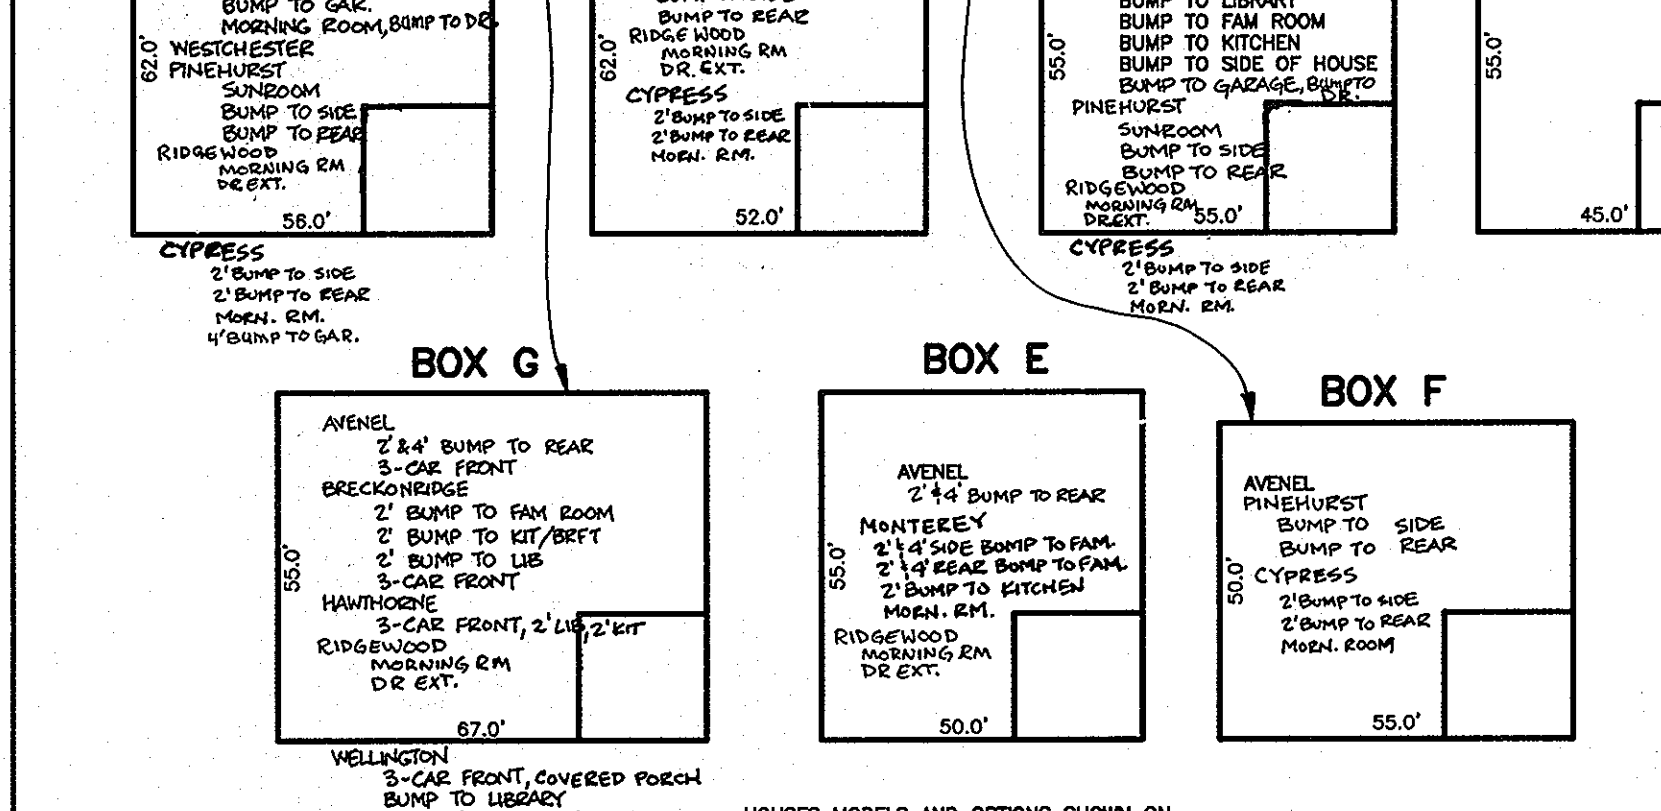 BUMP TO GAR.
MORNING ROOM, BUMP TO DR.
WESTCHESTER
PINEHURST
SUNROOM
BUMP TO SIDE
BUMP TO REAR
RIDGEWOOD
MORNING RM
DR EXT.
62.0'
56.0'
CYPRESS
2' BUMP TO SIDE
2' BUMP TO REAR
MORN. RM.
4' BUMP TO GAR.
BUMP TO REAR
RIDGEWOOD
MORNING RM
DR. EXT.
CYPRESS
2' BUMP TO SIDE
2' BUMP TO REAR
MORN. RM.
62.0'
52.0'
BUMP TO LIBRARY
BUMP TO FAM ROOM
BUMP TO KITCHEN
BUMP TO SIDE OF HOUSE
BUMP TO GARAGE, BUMP TO
DR.
PINEHURST
SUNROOM
BUMP TO SIDE
BUMP TO REAR
RIDGEWOOD
MORNING RM
DR EXT.
55.0'
55.0'
CYPRESS
2' BUMP TO SIDE
2' BUMP TO REAR
MORN. RM.
55.0'
45.0'
BOX G
AVENEL
2' & 4' BUMP TO REAR
3-CAR FRONT
BRECKONRIDGE
2' BUMP TO FAM ROOM
2' BUMP TO KIT/BRFT
2' BUMP TO LIB
3-CAR FRONT
HAWTHORNE
3-CAR FRONT, 2' LIB, 2' KIT
RIDGEWOOD
MORNING RM
DR EXT.
55.0'
67.0'
WELLINGTON
3-CAR FRONT, COVERED PORCH
BUMP TO LIBRARY
BOX E
AVENEL
2' & 4' BUMP TO REAR
MONTEREY
2' & 4' SIDE BUMP TO FAM.
2' & 4' REAR BUMP TO FAM.
2' BUMP TO KITCHEN
MORN. RM.
RIDGEWOOD
MORNING RM
DR EXT.
55.0'
50.0'
BOX F
AVENEL
PINEHURST
BUMP TO SIDE
BUMP TO REAR
CYPRESS
2' BUMP TO SIDE
2' BUMP TO REAR
MORN. ROOM
50.0'
55.0'
HOUSES MODELS AND OPTIONS SHOWN ON